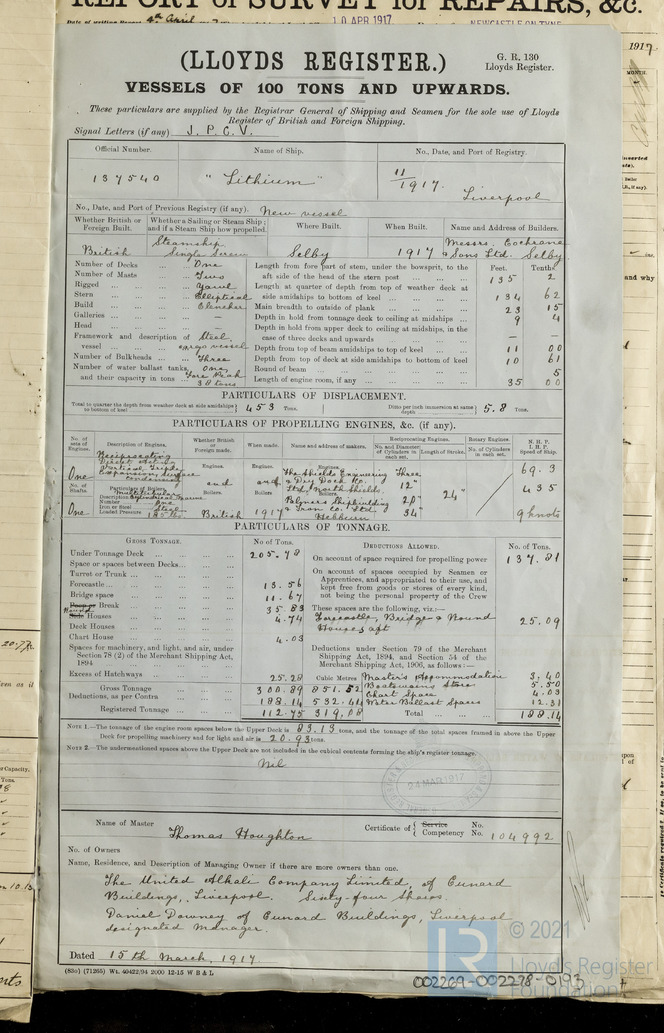 REPORT of SURVEY for REPAIRS, &c.
4th April
10 APR 1917
NEWCASTLE ON TYNE
(LLOYDS REGISTER.)
G. R. 130
Lloyds Register.
VESSELS OF 100 TONS AND UPWARDS.
These particulars are supplied by the Registrar General of Shipping and Seamen for the sole use of Lloyds
Register of British and Foreign Shipping.
Signal Letters (if any) J. P. C. V.
Official Number. Name of Ship. No., Date, and Port of Registry.
137540 "Lithium" 11/1917. Liverpool
No., Date, and Port of Previous Registry (if any). New vessel
Whether British or Foreign Built. Whether a Sailing or Steam Ship; and if a Steam Ship how propelled. Where Built. When Built. Name and Address of Builders.
British Steamship Single Screw Selby 1917 Messrs. Cochrane & Sons Ltd. Selby
Number of Decks ... One
Number of Masts ... Two
Rigged ... Yawl
Stern ... Elliptical
Build ... Clencher
Galleries ... —
Head ... —
Framework and description of vessel ... Steel, cargo vessel
Number of Bulkheads ... Three
Number of water ballast tanks, and their capacity in tons One Fore Peak 30 tons
Feet. Tenths.
Length from fore part of stem, under the bowsprit, to the aft side of the head of the stern post ... 135 2
Length at quarter of depth from top of weather deck at side amidships to bottom of keel ... 134 62
Main breadth to outside of plank ... 23 15
Depth in hold from tonnage deck to ceiling at midships ... 9 4
Depth in hold from upper deck to ceiling at midships, in the case of three decks and upwards ... —
Depth from top of beam amidships to top of keel ... 11 00
Depth from top of deck at side amidships to bottom of keel 10 61
Round of beam ... 5
Length of engine room, if any ... 35 00
PARTICULARS OF DISPLACEMENT.
Total to quarter the depth from weather deck at side amidships to bottom of keel 453 Tons.
Ditto per inch immersion at same depth 5.8 Tons.
PARTICULARS OF PROPELLING ENGINES, &c. (if any).
No. of sets of Engines. Description of Engines. Whether British or Foreign made. When made. Name and address of makers. Reciprocating Engines. No. and Diameter of Cylinders in each set. Length of Stroke. Rotary Engines. No. of Cylinders in each set. N. H. P. I. H. P. Speed of Ship.
One Reciprocating Direct Acting Vertical Triple Expansion, Surface Condensing
No. of Shafts. Particulars of Boilers.
One Description Number Iron or Steel Loaded Pressure
Multitubular Cylindrical Marine One Steel
Engines. and Boilers. British
Engines. and Boilers. 1917
Engines. The Shields Engineering & Dry Dock Co. Ltd., North Shields.
Boilers. Palmers Shipbuilding & Iron Co. Ltd. Hebburn
Three 12" 20" 34" 24"
69.3
435
9 knots
PARTICULARS OF TONNAGE.
GROSS TONNAGE. No. of Tons. DEDUCTIONS ALLOWED. No. of Tons.
Under Tonnage Deck ... 205.78
Space or spaces between Decks ...
Turret or Trunk ...
Forecastle ... 13.56
Bridge space ... 11.67
Poop or Break ... 35.83
Round Side Houses ... 4.74
Deck Houses ...
Chart House ... 4.03
Spaces for machinery, and light, and air, under Section 78 (2) of the Merchant Shipping Act, 1894
Excess of Hatchways ... 25.28
Cubic Metres
Gross Tonnage ... 300.89 851.52
Deductions, as per Contra ... 188.14 532.44
Registered Tonnage ... 112.75 319.08
On account of space required for propelling power 137.81
On account of spaces occupied by Seamen or Apprentices, and appropriated to their use, and kept free from goods or stores of every kind, not being the personal property of the Crew
These spaces are the following, viz.:—
Forecastle, Bridge & Round Houses aft 25.09
Deductions under Section 79 of the Merchant Shipping Act, 1894, and Section 54 of the Merchant Shipping Act, 1906, as follows:—
Master's Accommodation 3.40
Boatswains Store 5.50
Chart Space 4.03
Water Ballast Spaces 12.31
Total ... 188.14
NOTE 1.—The tonnage of the engine room spaces below the Upper Deck is 83.13 tons, and the tonnage of the total spaces framed in above the Upper
Deck for propelling machinery and for light and air is 20.93 tons.
NOTE 2.—The undermentioned spaces above the Upper Deck are not included in the cubical contents forming the ship's register tonnage.
Nil
24 MAR 1917
Name of Master Thomas Houghton Certificate of { Service Competency No. No. 104992
No. of Owners
Name, Residence, and Description of Managing Owner if there are more owners than one.
The United Alkali Company Limited, of Cunard
Buildings, Liverpool. Sixty-four Shares.
Daniel Downey of Cunard Buildings, Liverpool
designated Manager.
Dated 15th March, 1917
(83o) (71265) Wt. 40422/94 2000 12-15 W B & L
002269-002278-0193
© 2021
Lloyd's Register
Foundation